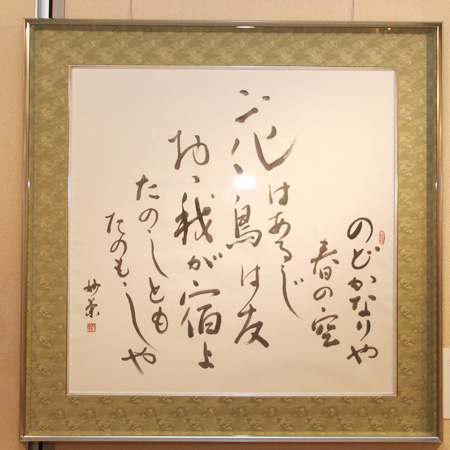 のどかなりや
春の空
花はあるじ
鳥は友
おゝ我が宿よ
たのしとも
たのもしや